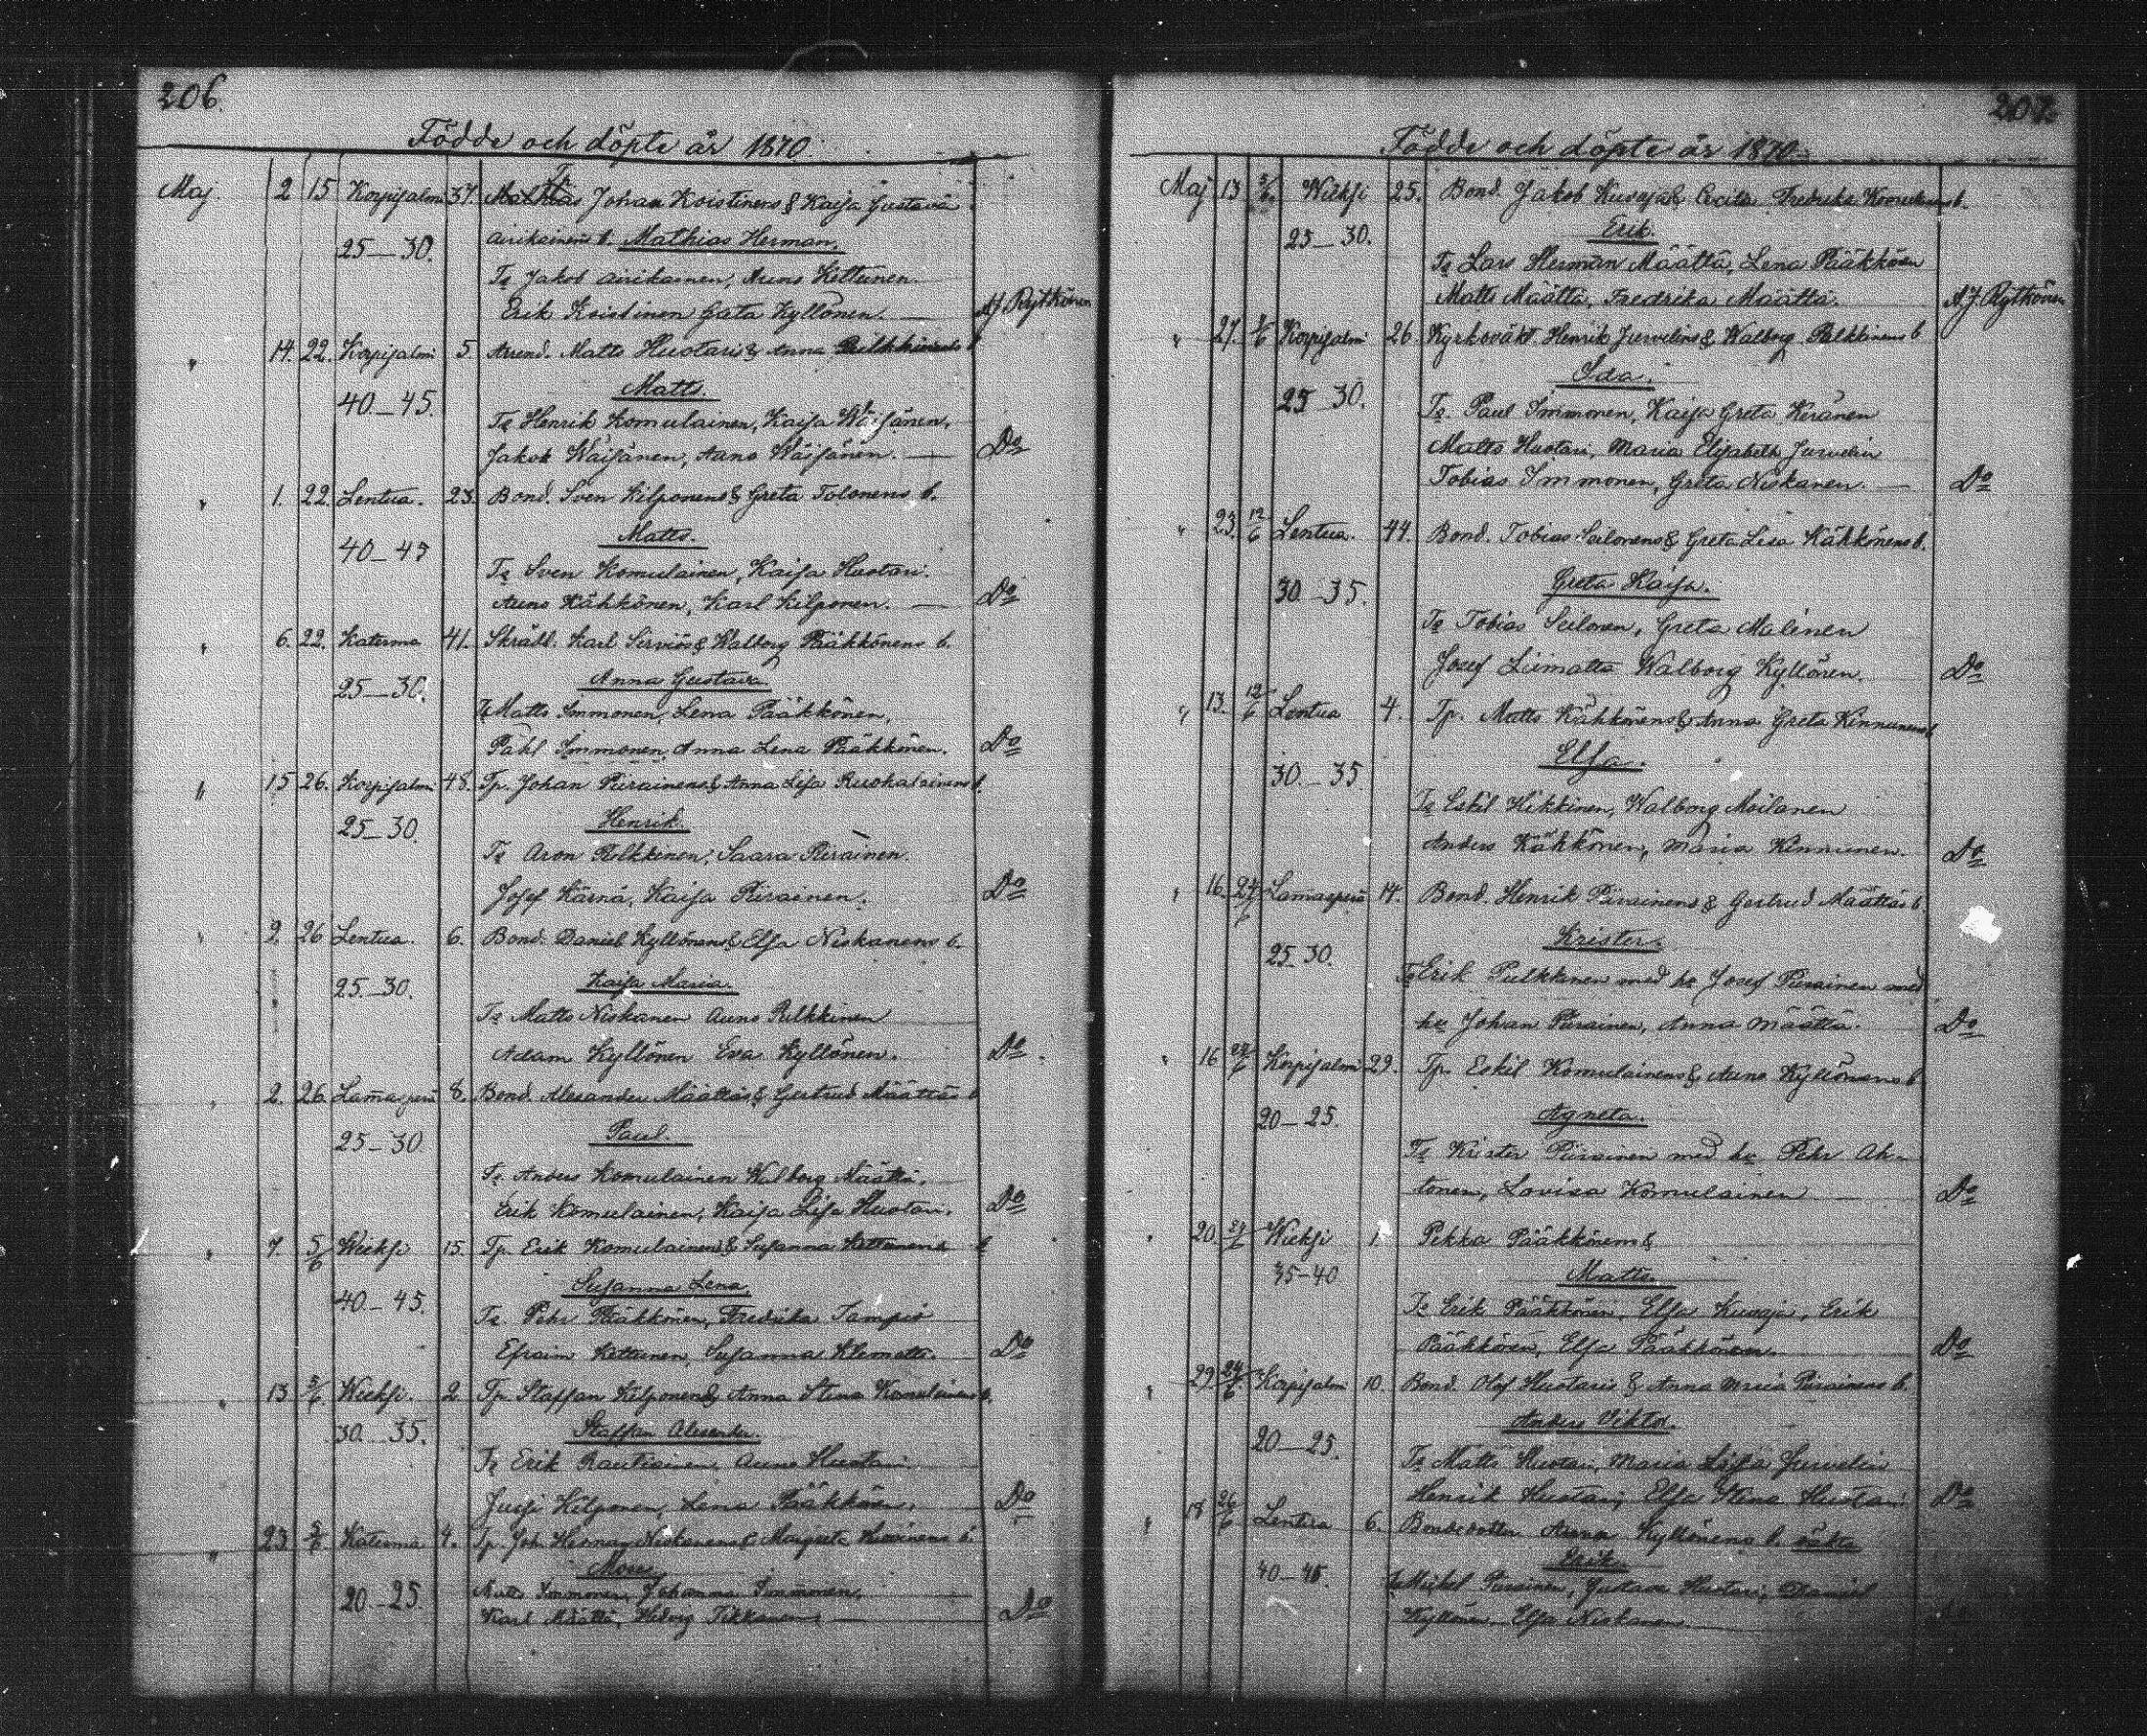 206.
Födde och döpte år 1870.
Maj. 2 15 Korpisalmi 37. Johan Koistinens & Kaisa Gustava
Airikainens b. Mathias Herman.
25–30.
Ts Jakob Airikainen, Auno Kettunen
Erik Koistinen Gata Kyllönen. — AJ Rytkönen
" 14. 22. Korpisalmi 5. Arend. Matts Huotaris & Anna Pulkkinens b
Matts.
40–45.
Ts Henrik Komulainen, Kaisa Wäisänen,
Jakob Wäisänen, Auno Wäisänen. — Do
" 1. 22. Lentua. 23. Bond. Sven Kilponens & Greta Tolonens b.
Matts.
40–45
Ts Sven Komulainen, Kaisa Huotari.
Auno Kähkönen, Karl Kilponen. — Do
" 6. 22. Katerma 41. Skrädd. Karl Serviös & Walborg Pääkkönens b.
Anna Gustava
25–30.
Ts Matts Immonen, Lena Pääkkönen,
Påhl Immonen, Anna Lena Pääkkönen. Do
" 15 26. Korpisalmi 48. Tp. Johan Piirainens & Anna Lisa Ruokolainens b.
Henrik.
25–30.
Ts Aron Pulkkinen, Saara Piirainen.
Josef Kärnä, Kaisa Piirainen. Do
" 9. 26 Lentua. 6. Bond. Daniel Kyllönens & Elsa Niskanens b.
Kaisa Maria.
25.–30.
Ts Matts Niskanen Auno Pulkkinen
Adam Kyllönen Eva Kyllönen. Do
" 2. 26. Lam̄asperä 8. Bond. Alexander Määttäs & Gertrud Määttäs b
Paul.
25–30.
Ts. Anders Komulainen Walborg Määttä,
Erik Komulainen, Kaisa Lisa Huotari. Do
" 7. 5/6 Wieksi 15. Tp. Erik Komulainens & Susanna Kettunens b
Susanna Lena
40–45.
Ts. Pehr Pääkkönen, Fredrika Tampio
Efraim Kettunen, Susanna Klemetti. Do
" 13 5/6. Wieksi. 2. Tp. Staffan Kilponens & Anna Stina Komulainens b.
Staffan Alexander.
30.–35.
Ts Erik Rautiainen, Auno Huotari
Jussi Kilponen, Lena Pääkkönen. Do
" 23 5/6 Katerma 4. Tp. Joh. Herman Niskanens & Margreta b.
Moses
20–25.
Matts Immonen, Johanna Immonen,
Karl Määttä, Hedvig Tikkanen. — Do
207.
Födde och döpte år 1870.
Maj 13 5/6. Wieksi 25. Bond. Jakob Kusaja & Cecilia Fredrika Komulainens b.
Erik.
25–30.
Ts Lars Herman Määttä, Lena Pääkkönen
Matts Määttä, Fredrika Määttä. AJ Rytkönen
" 27. 5/6 Korpisalmi 26. Kyrkovakt. Henrik Jurvelins & Walborg Pulkkinens b
Ida.
25–30.
Ts. Paul Immonen, Kaisa Greta Keränen
Matts Huotari, Maria Elisabeth Jurvelin
Tobias Immonen, Greta Niskanen. — Do
" 23. 12/6 Lentua. 44. Bond. Tobias Seilonens & Greta Lisa Kähkönens b.
Greta Kaisa.
30.–35.
Ts Tobias Seilonen, Greta Malinen
Josef Liimatta Walborg Kyllönen. Do
" 13. 12/6 Lentua 4. Tp. Matts Kähkönens & Anna Greta Kinnunens b
Elsa.
30.–35.
Ts Eskil Heikkinen, Walborg Moilanen
Anders Kähkönen, Maria Kinnunen. Do
" 16. 24/6 Lam̄asperä 14. Bond. Henrik Piirainens & Gertrud Määttäs b.
Krister.
25–30.
Ts Erik Pulkkinen med hu Josef Piirainen med
hu Johan Piirainen, Anna Määttä. Do
" 16 24/6 Korpisalmi 29. Tp. Eskil Komulainens & Auno Kyllönens b
Agneta.
20–25.
Ts Krister Piirainen med hu Pehr Ah-
tonen, Lovisa Komulainen — Do
" 20. 24/6 Wieksi 1. Pekka Pääkkönens &
Matts
35–40
Ts Erik Pääkkönen, Elsa Kusaja, Erik
Pääkkönen, Elsa Pääkkönen. Do
" 29. 24/6 Korpisalmi 10. Bond. Olof Huotaris & Anna Maria Piirainens b.
Anders Viktor.
20–25.
Ts Matts Huotari, Maria Lisa Jurvelin
Henrik Huotari, Elsa Stina Huotari Do
" 18 26/6 Lentua 6. Bondedottr Anna Kyllönens b. oäkta
Erik.
40–45.
Ts Mickel Piirainen, Gustava Huotari, Daniel
Kyllönen, Elsa Niskanen